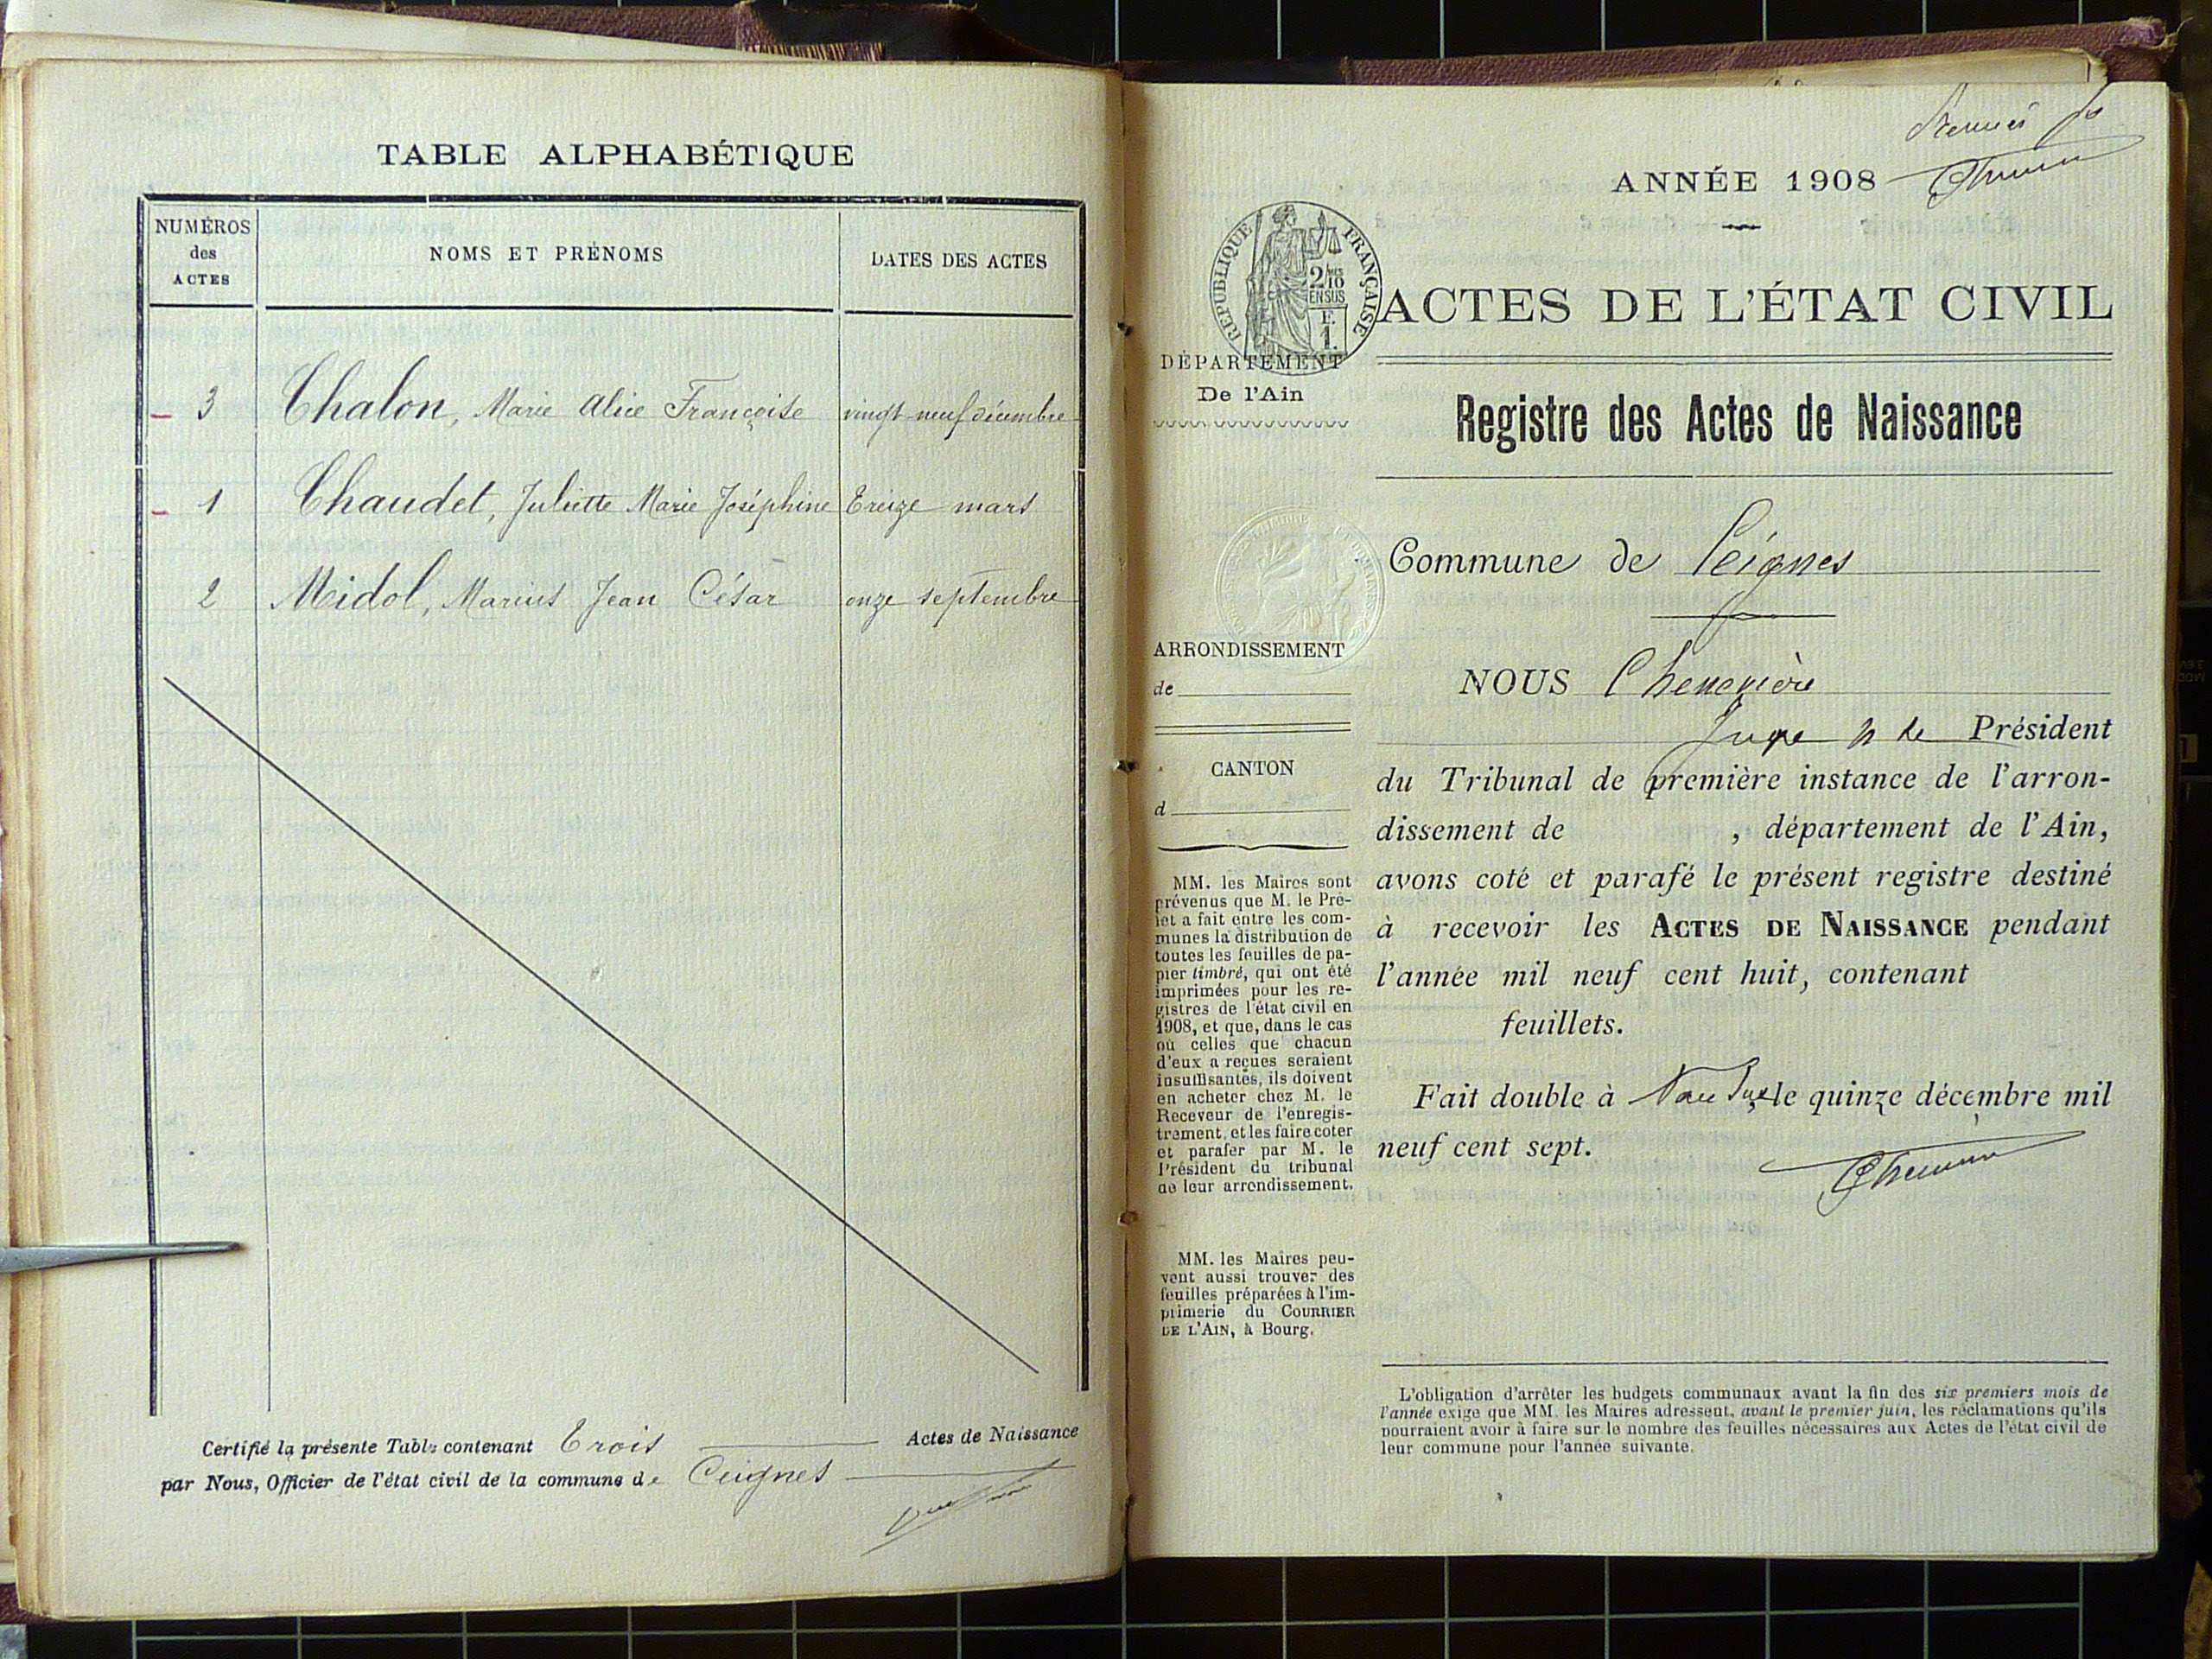 TABLE ALPHABÉTIQUE
NUMÉROS
des
ACTES
NOMS ET PRÉNOMS
DATES DES ACTES
3 Chalon, Marie Alice Françoise vingt-neuf décembre
1 Chaudet, Juliette Marie Joséphine Treize mars
2 Midol, Marius Jean César onze septembre
Certifié la présente Table contenant Trois Actes de Naissance
par Nous, Officier de l'état civil de la commune de Ceignes
Premier
ANNÉE 1908
RÉPUBLIQUE FRANÇAISE
2/10
EN SUS
F.
1.
ACTES DE L'ÉTAT CIVIL
DÉPARTEMENT
De l'Ain
Registre des Actes de Naissance
Commune de Ceignes
ARRONDISSEMENT
de
CANTON
d
NOUS Chenevière
Juge Président
du Tribunal de première instance de l'arron-
dissement de , département de l'Ain,
avons coté et parafé le présent registre destiné
à recevoir les ACTES DE NAISSANCE pendant
l'année mil neuf cent huit, contenant
feuillets.
Fait double à Nantua le quinze décembre mil
neuf cent sept.
MM. les Maires sont
prévenus que M. le Pré-
fet a fait entre les com-
munes la distribution de
toutes les feuilles de pa-
pier timbré, qui ont été
imprimées pour les re-
gistres de l'état civil en
1908, et que, dans le cas
où celles que chacun
d'eux a reçues seraient
insuffisantes, ils doivent
en acheter chez M. le
Receveur de l'enregis-
trement, et les faire coter
et parafer par M. le
Président du tribunal
de leur arrondissement.
MM. les Maires peu-
vent aussi trouver des
feuilles préparées à l'im-
primerie du COURRIER
DE L'AIN, à Bourg.
L'obligation d'arrêter les budgets communaux avant la fin des six premiers mois de
l'année exige que MM. les Maires adressent, avant le premier juin, les réclamations qu'ils
pourraient avoir à faire sur le nombre des feuilles nécessaires aux Actes de l'état civil de
leur commune pour l'année suivante.